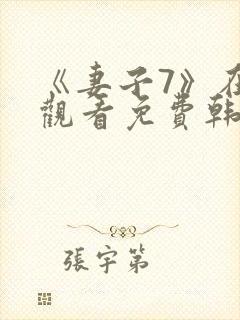 《妻子7》在
觀看免費韓
張宇第